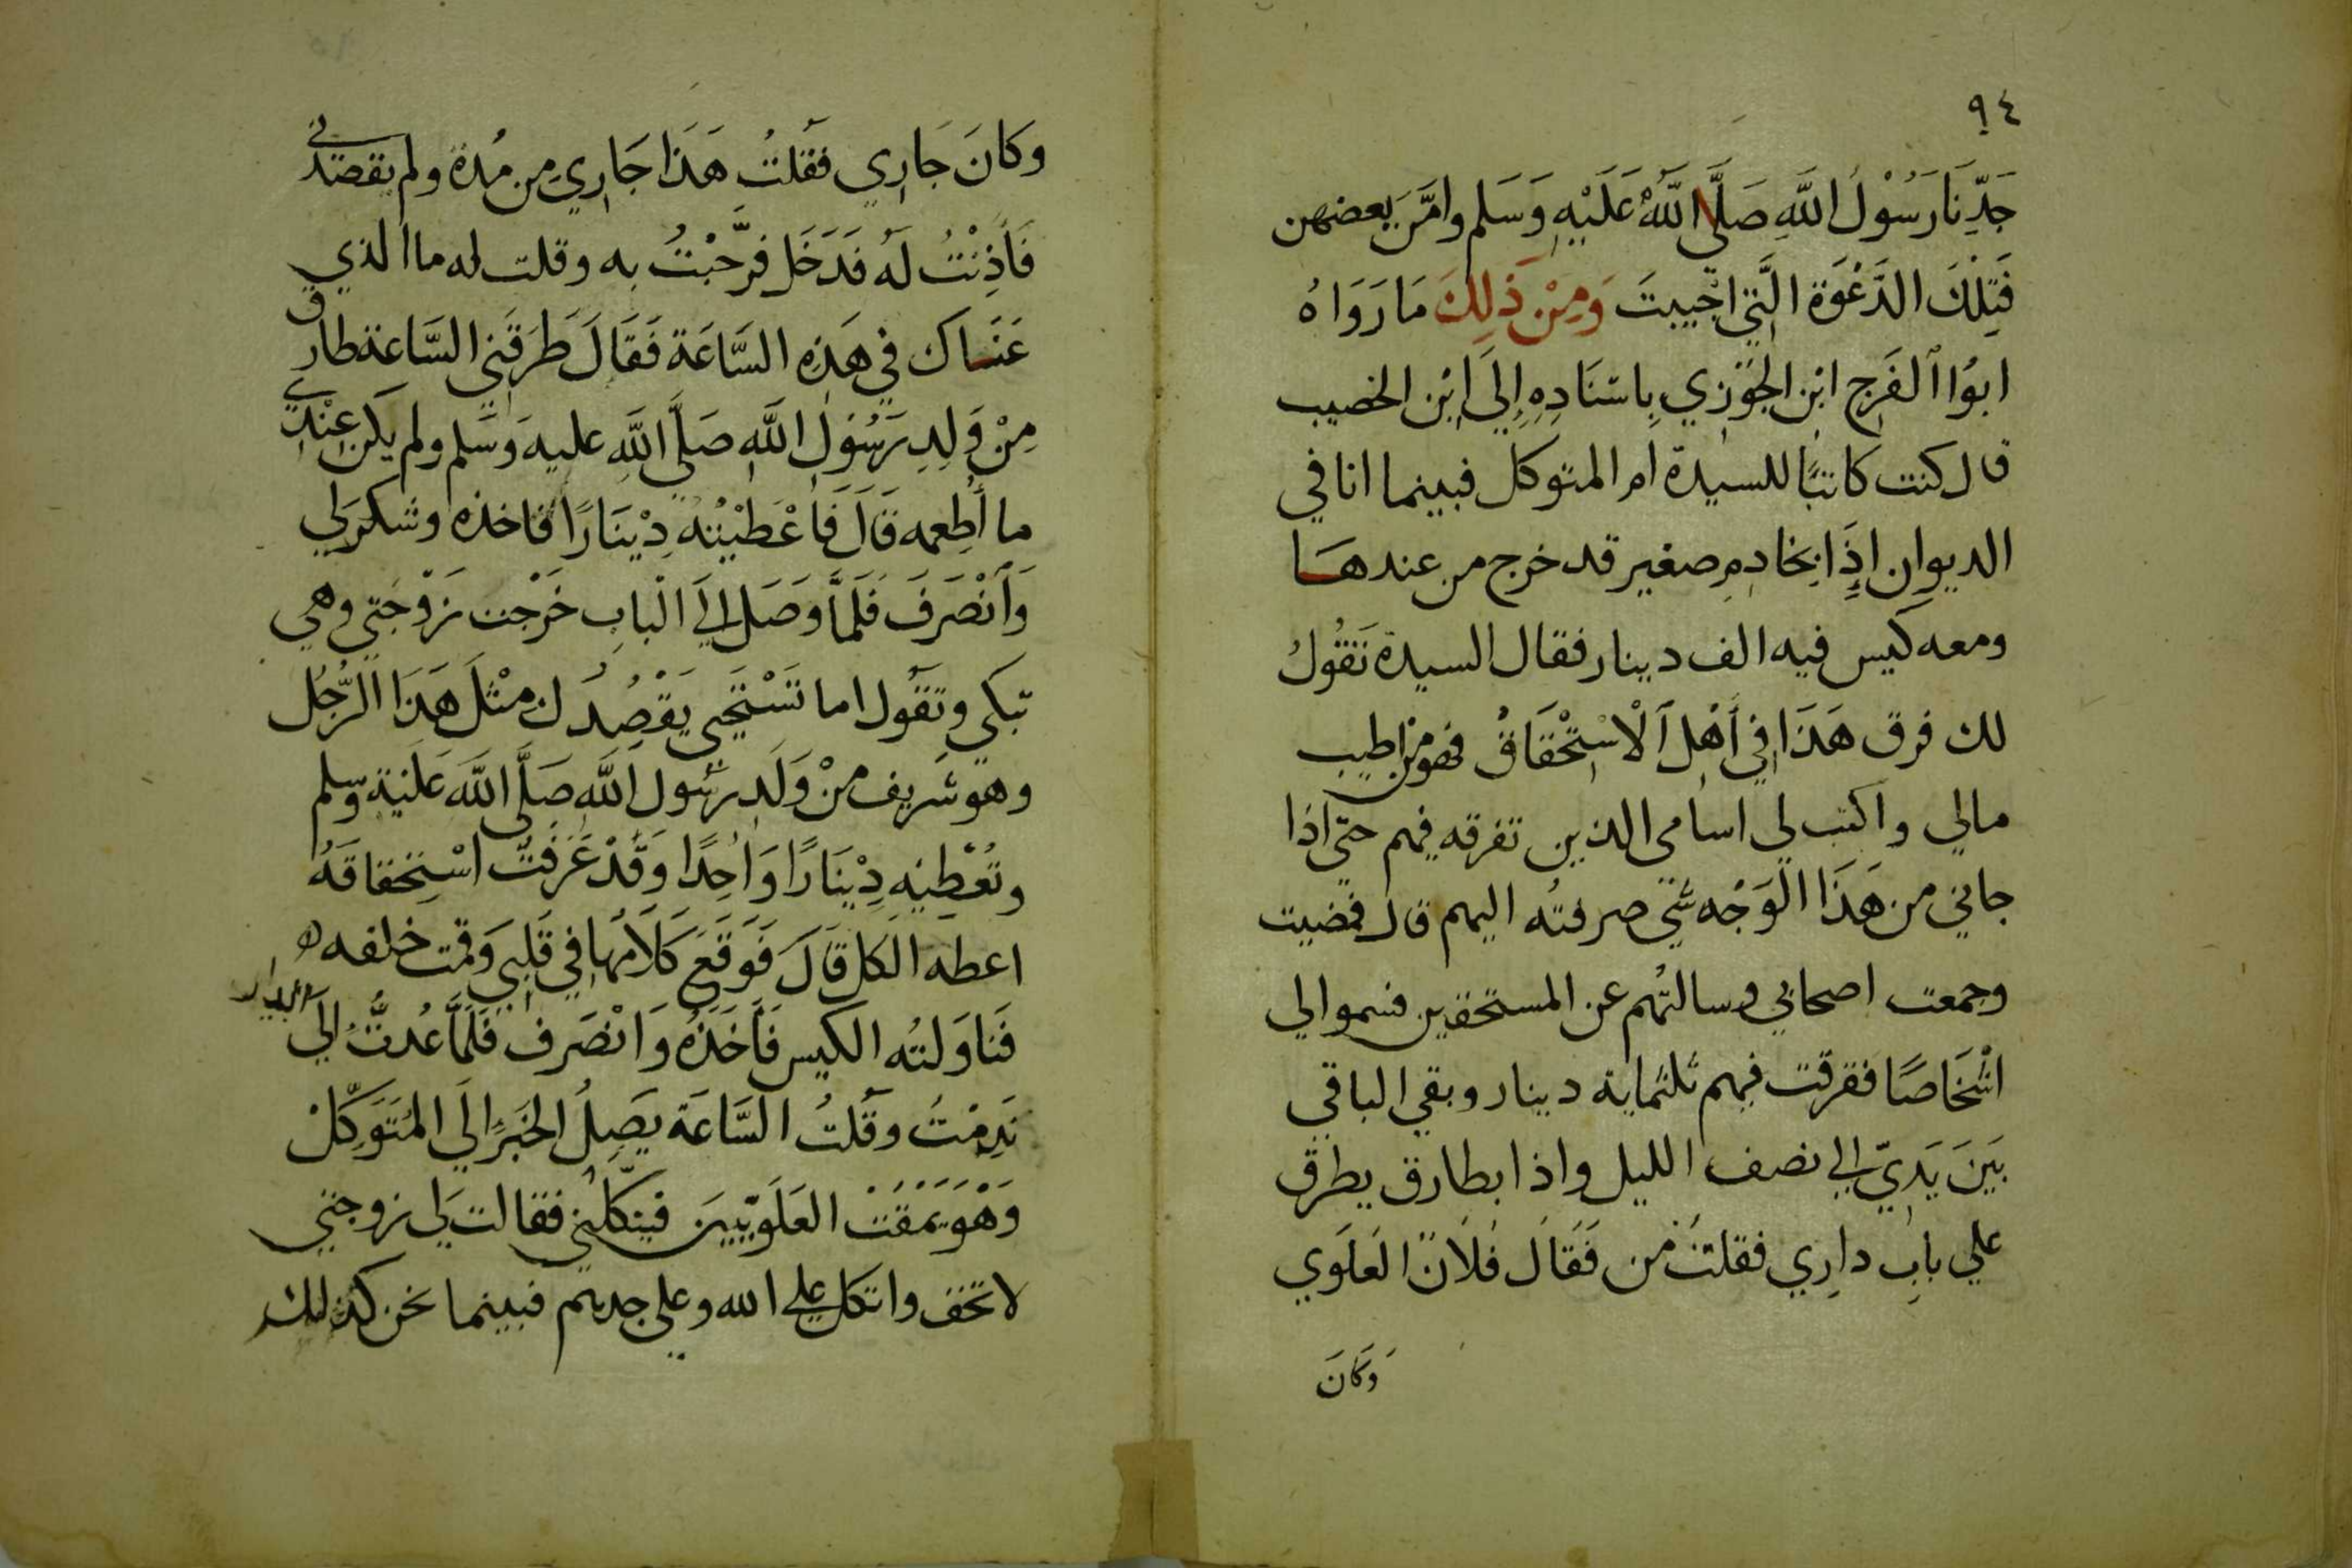 ٩٤
جَدِّنَا رَسُوْلُ اللَّهِ صَلَّى اللَّهُ عَلَيْهِ وَسَلم وامَّنَ بعضهن
فَتِلْكَ الدَّعْوَة الَّتِي اجِيبتَ وَمِنْ ذَلِكَ مَا رَوَاهُ
ابوُا الفَرج ابْن الجَوْزي بِاسْنَادِهِ إِلَى ابْن الخصيب
قال كنت كاتبًا للسيدة ام المتوكل فبينما انا في
الديوان إِذَا بخادمٍ صغير قد خرج من عندهَا
ومعه كَيس فيه الف دينار فقال السيدة تَقُولُ
لك فرق هَذَا فِي أَهْل اَلْاسْتِحْقَاقْ فهو من اطيب
مالي واكتب لي اسامى الذين تفرقه فيهم حتى اذا
جاني من هَذَا الوَجْه شَي صرفتُه اليهم قال فمضيت
وجمعت اصحابي وسالتُهم عن المستحقين فسموا لي
اشْخَاصًا ففرقت فيهم ثلثماية دينار وبقي الباقي
بَيَنَ يَدَيّ الي نصف الليل واذا بطارق يطرق
علي بابِ دارِي فقلتُ مَن فَقَالَ فُلَانٌ العَلَوي
وَكَانَ
وكَانَ جَارِي فقَلتُ هَذَا جَارِي من مُدة ولم يقصدني
فَأَذِنْتُ لَهُ فَدَخَل فرَّحْبْتُ به وقلت له ما الذي
عَنَساكَ في هَذِهِ السَّاعَة فَقَالَ طَرَقَنِي السَّاعة طارق
مِنْ وَلِدِ رَسُوْلِ اللَّهِ صَلَّى اللَّهِ عليه وَسَلم ولم يكن عِنْدِي
ما أُطعِمه قَالَ فَاعْطَيْتُهُ دِيْنَارًا فاخذه وشكر لي
وَاَنْصَرَفَ فَلَمَّا وَصَل الِيَ الْبابِ خَرْجت زَوْجَتِي وهي
تبكي وتقَول اما تَسْتَحِي يَقْصِدُك مثْلَ هَذَا الرَّجُل
وهو شَريف منْ وَلَدِ رسُول اللَّهِ صَلَّى اللَّهَ عَلَيْهِ وسلم
وتُعْطِيْهِ دِيْنَارًا وَاحِدًا وَقَدْ عَرَفَتَ اسْتِحقاقَهُ
اعطه الكل قَالَ فَوَقَعَ كَلَامُهَا فِي قَلبِي وَقمت خلفه
فَنَاوَلتُه الكيس فَأَخَذَهُ وَانْصَرَف فَلَمَّا عُدتُّ الِي الدار
نَدِمْتُ وقَلتُ السَّاعَة يصِلُ الخَبَر الَي المُتَوَكِّلْ
وَهْوَ يَمْقُتْ العَلَوِيّيِيَن فينكلني فقالت لِي زوجتي
لا تخف واتكل علي الله وعلي جديهم فبينما نحن كذلك